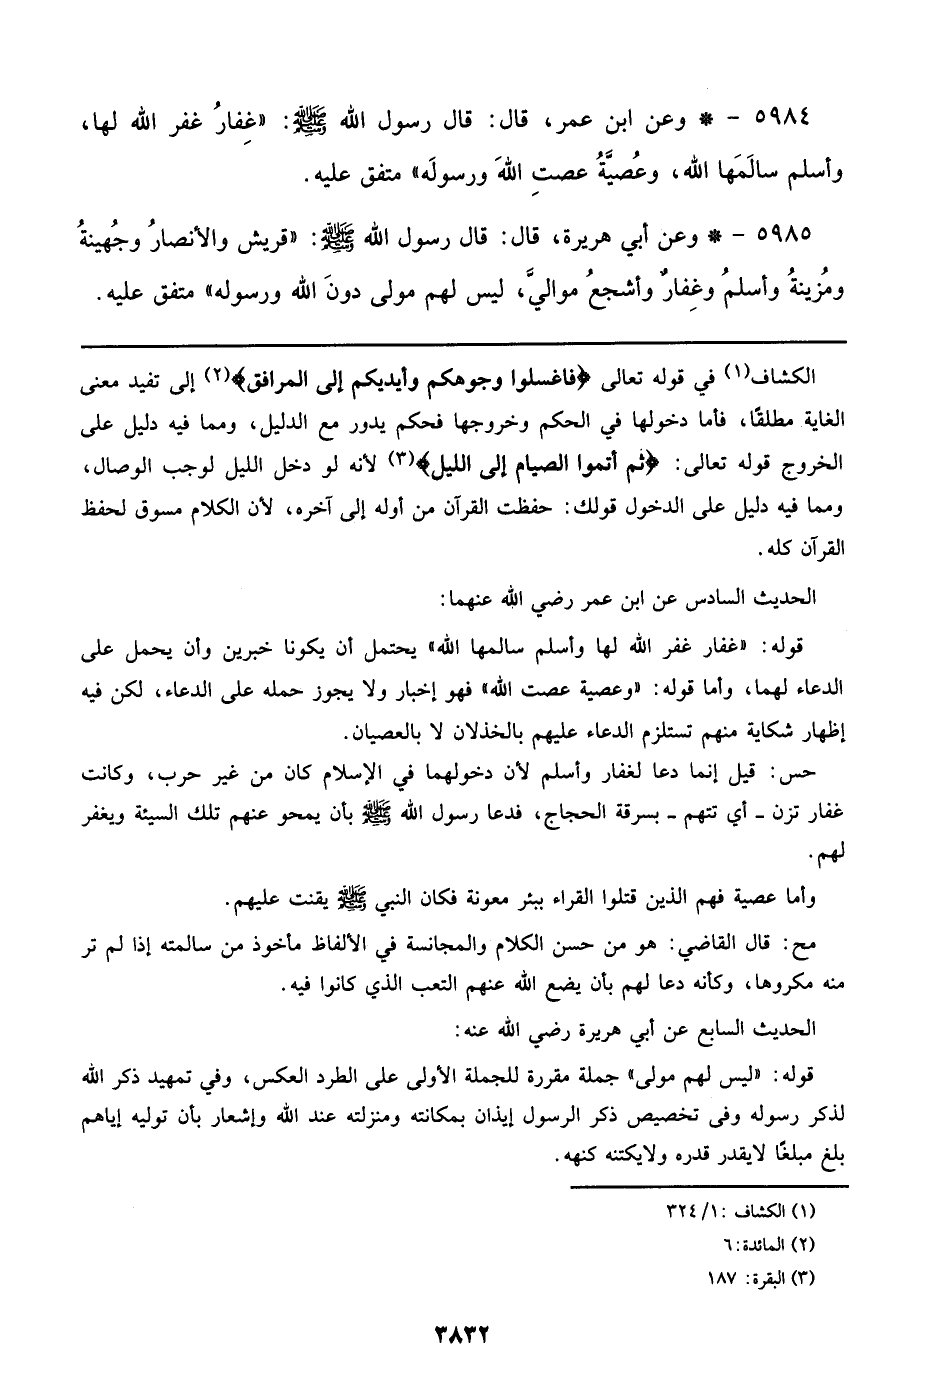 ٥٩٨٤ – * وعن ابن عمر، قال: قال رسول الله ﷺ: «غِفارُ غفر الله لها،
وأسلم سالَمَها الله، وعُصيَّةُ عصتِ اللهَ ورسولَه» متفق عليه.
٥٩٨٥ – * وعن أبي هريرة، قال: قال رسول الله ﷺ: «قريش والأنصارُ وجُهينةُ
ومُزينةُ وأسلمُ وغِفارٌ وأشجعُ مواليَّ، ليس لهم مولى دونَ الله ورسوله» متفق عليه.
الكشاف(١) في قوله تعالى ﴿فاغسلوا وجوهكم وأيديكم إلى المرافق﴾(٢) إلى تفيد معنى
الغاية مطلقًا، فأما دخولها في الحكم وخروجها فحكم يدور مع الدليل، ومما فيه دليل على
الخروج قوله تعالى: ﴿ثم أتموا الصيام إلى الليل﴾(٣) لأنه لو دخل الليل لوجب الوصال،
ومما فيه دليل على الدخول قولك: حفظت القرآن من أوله إلى آخره، لأن الكلام مسوق لحفظ
القرآن كله.
الحديث السادس عن ابن عمر رضي الله عنهما:
قوله: «غفار غفر الله لها وأسلم سالمها الله» يحتمل أن يكونا خبرين وأن يحمل على
الدعاء لهما، وأما قوله: «وعصية عصت الله» فهو إخبار ولا يجوز حمله على الدعاء، لكن فيه
إظهار شكاية منهم تستلزم الدعاء عليهم بالخذلان لا بالعصيان.
حس: قيل إنما دعا لغفار وأسلم لأن دخولهما في الإسلام كان من غير حرب، وكانت
غفار تزن ـ أي تتهم ـ بسرقة الحجاج، فدعا رسول الله ﷺ بأن يمحو عنهم تلك السيئة ويغفر
لهم.
وأما عصية فهم الذين قتلوا القراء ببئر معونة فكان النبي ﷺ يقنت عليهم.
مح: قال القاضي: هو من حسن الكلام والمجانسة في الألفاظ مأخوذ من سالمته إذا لم تر
منه مكروها، وكأنه دعا لهم بأن يضع الله عنهم التعب الذي كانوا فيه.
الحديث السابع عن أبي هريرة رضي الله عنه:
قوله: «ليس لهم مولى» جملة مقررة للجملة الأولى على الطرد العكس، وفي تمهيد ذكر الله
لذكر رسوله وفى تخصيص ذكر الرسول إيذان بمكانته ومنزلته عند الله وإشعار بأن توليه إياهم
بلغ مبلغًا لايقدر قدره ولايكتنه كنهه.
(١) الكشاف :١/ ٣٢٤
(٢) المائدة:٦
(٣) البقرة: ١٨٧
٣٨٣٢